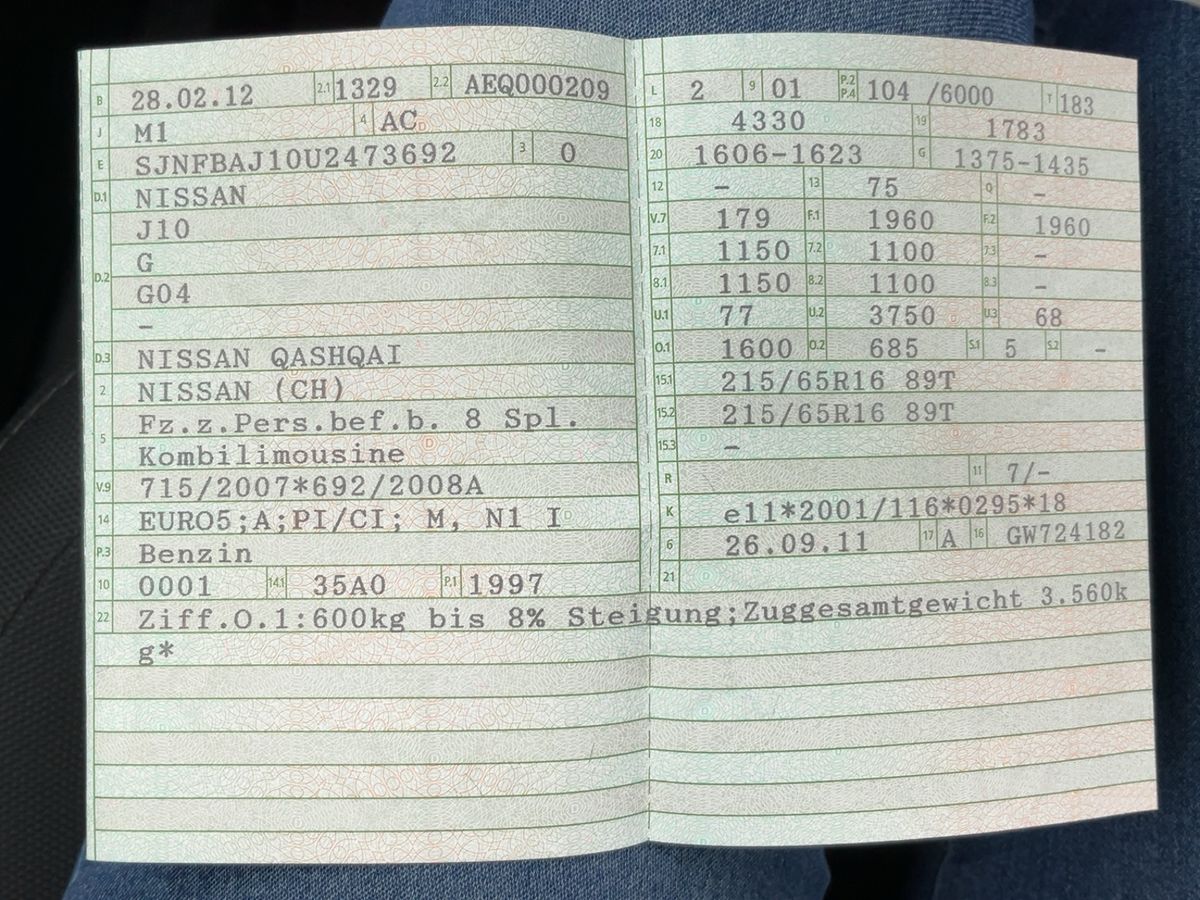 B 28.02.12 2.1 1329 2.2 AEQ000209
J M1 4 AC
E SJNFBAJ10U2473692 3 0
D.1 NISSAN
J10
D.2 G
G04
–
D.3 NISSAN QASHQAI
2 NISSAN (CH)
5 Fz.z.Pers.bef.b. 8 Spl.
Kombilimousine
V.9 715/2007*692/2008A
14 EURO5;A;PI/CI; M, N1 I
P.3 Benzin
10 0001 14.1 35A0 P.1 1997
L 2 9 01 P.2 P.4 104 /6000 T 183
18 4330 19 1783
20 1606-1623 G 1375-1435
12 – 13 75 Q –
V.7 179 F.1 1960 F.2 1960
7.1 1150 7.2 1100 7.3 –
8.1 1150 8.2 1100 8.3 –
U.1 77 U.2 3750 U.3 68
O.1 1600 O.2 685 S.1 5 S.2 –
15.1 215/65R16 89T
15.2 215/65R16 89T
15.3 –
R 11 7/-
K e11*2001/116*0295*18
6 26.09.11 17 A 16 GW724182
21
22 Ziff.O.1:600kg bis 8% Steigung;Zuggesamtgewicht 3.560k
g*